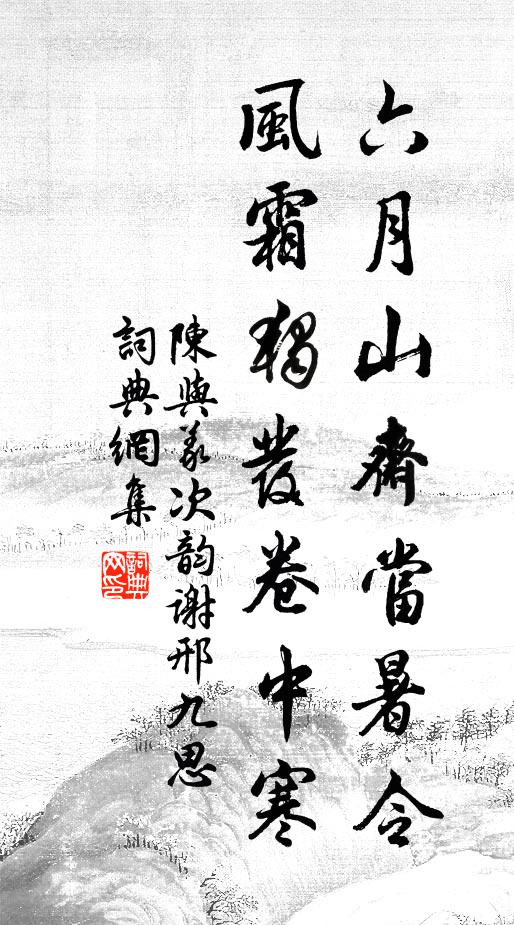 六月山齋當暑令
風霜獨發卷中寒
陳與義次韵謝邢九思
詞典網集
詞典網印